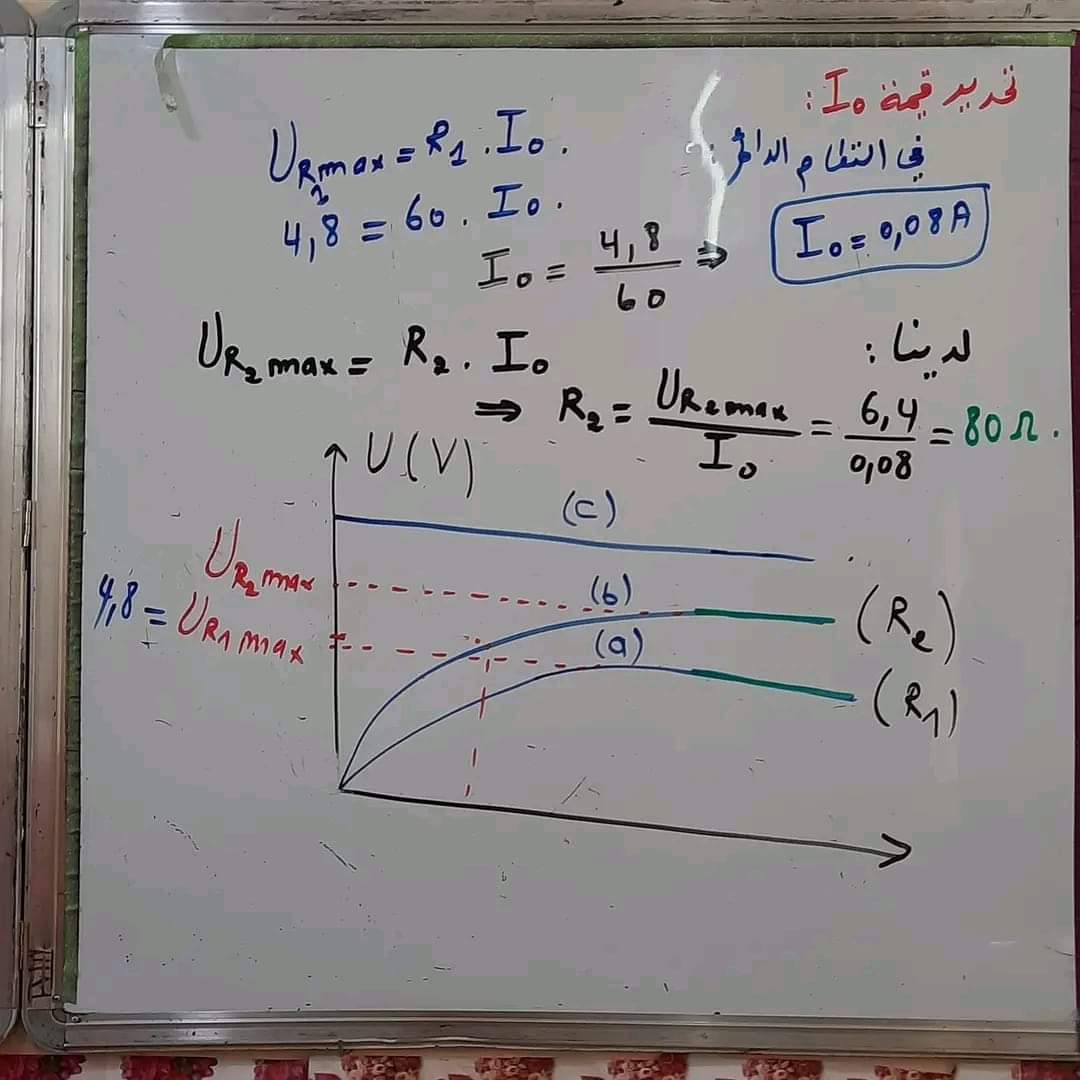 تحديد قيمة I₀ :
في النظام الدائم :
U_R₁max = R₁ . I₀ .
4,8 = 60 . I₀ .
I₀ = 4,8 / 60 ⇒ I₀ = 0,08A
لدينا :
U_R₂ max = R₂ . I₀
⇒ R₂ = U_R₂ max / I₀ = 6,4 / 0,08 = 80 Ω .
U(V)
(c)
U_R₂ max
(b)
(R₂)
4,8 = U_R₁ max
(a)
(R₁)